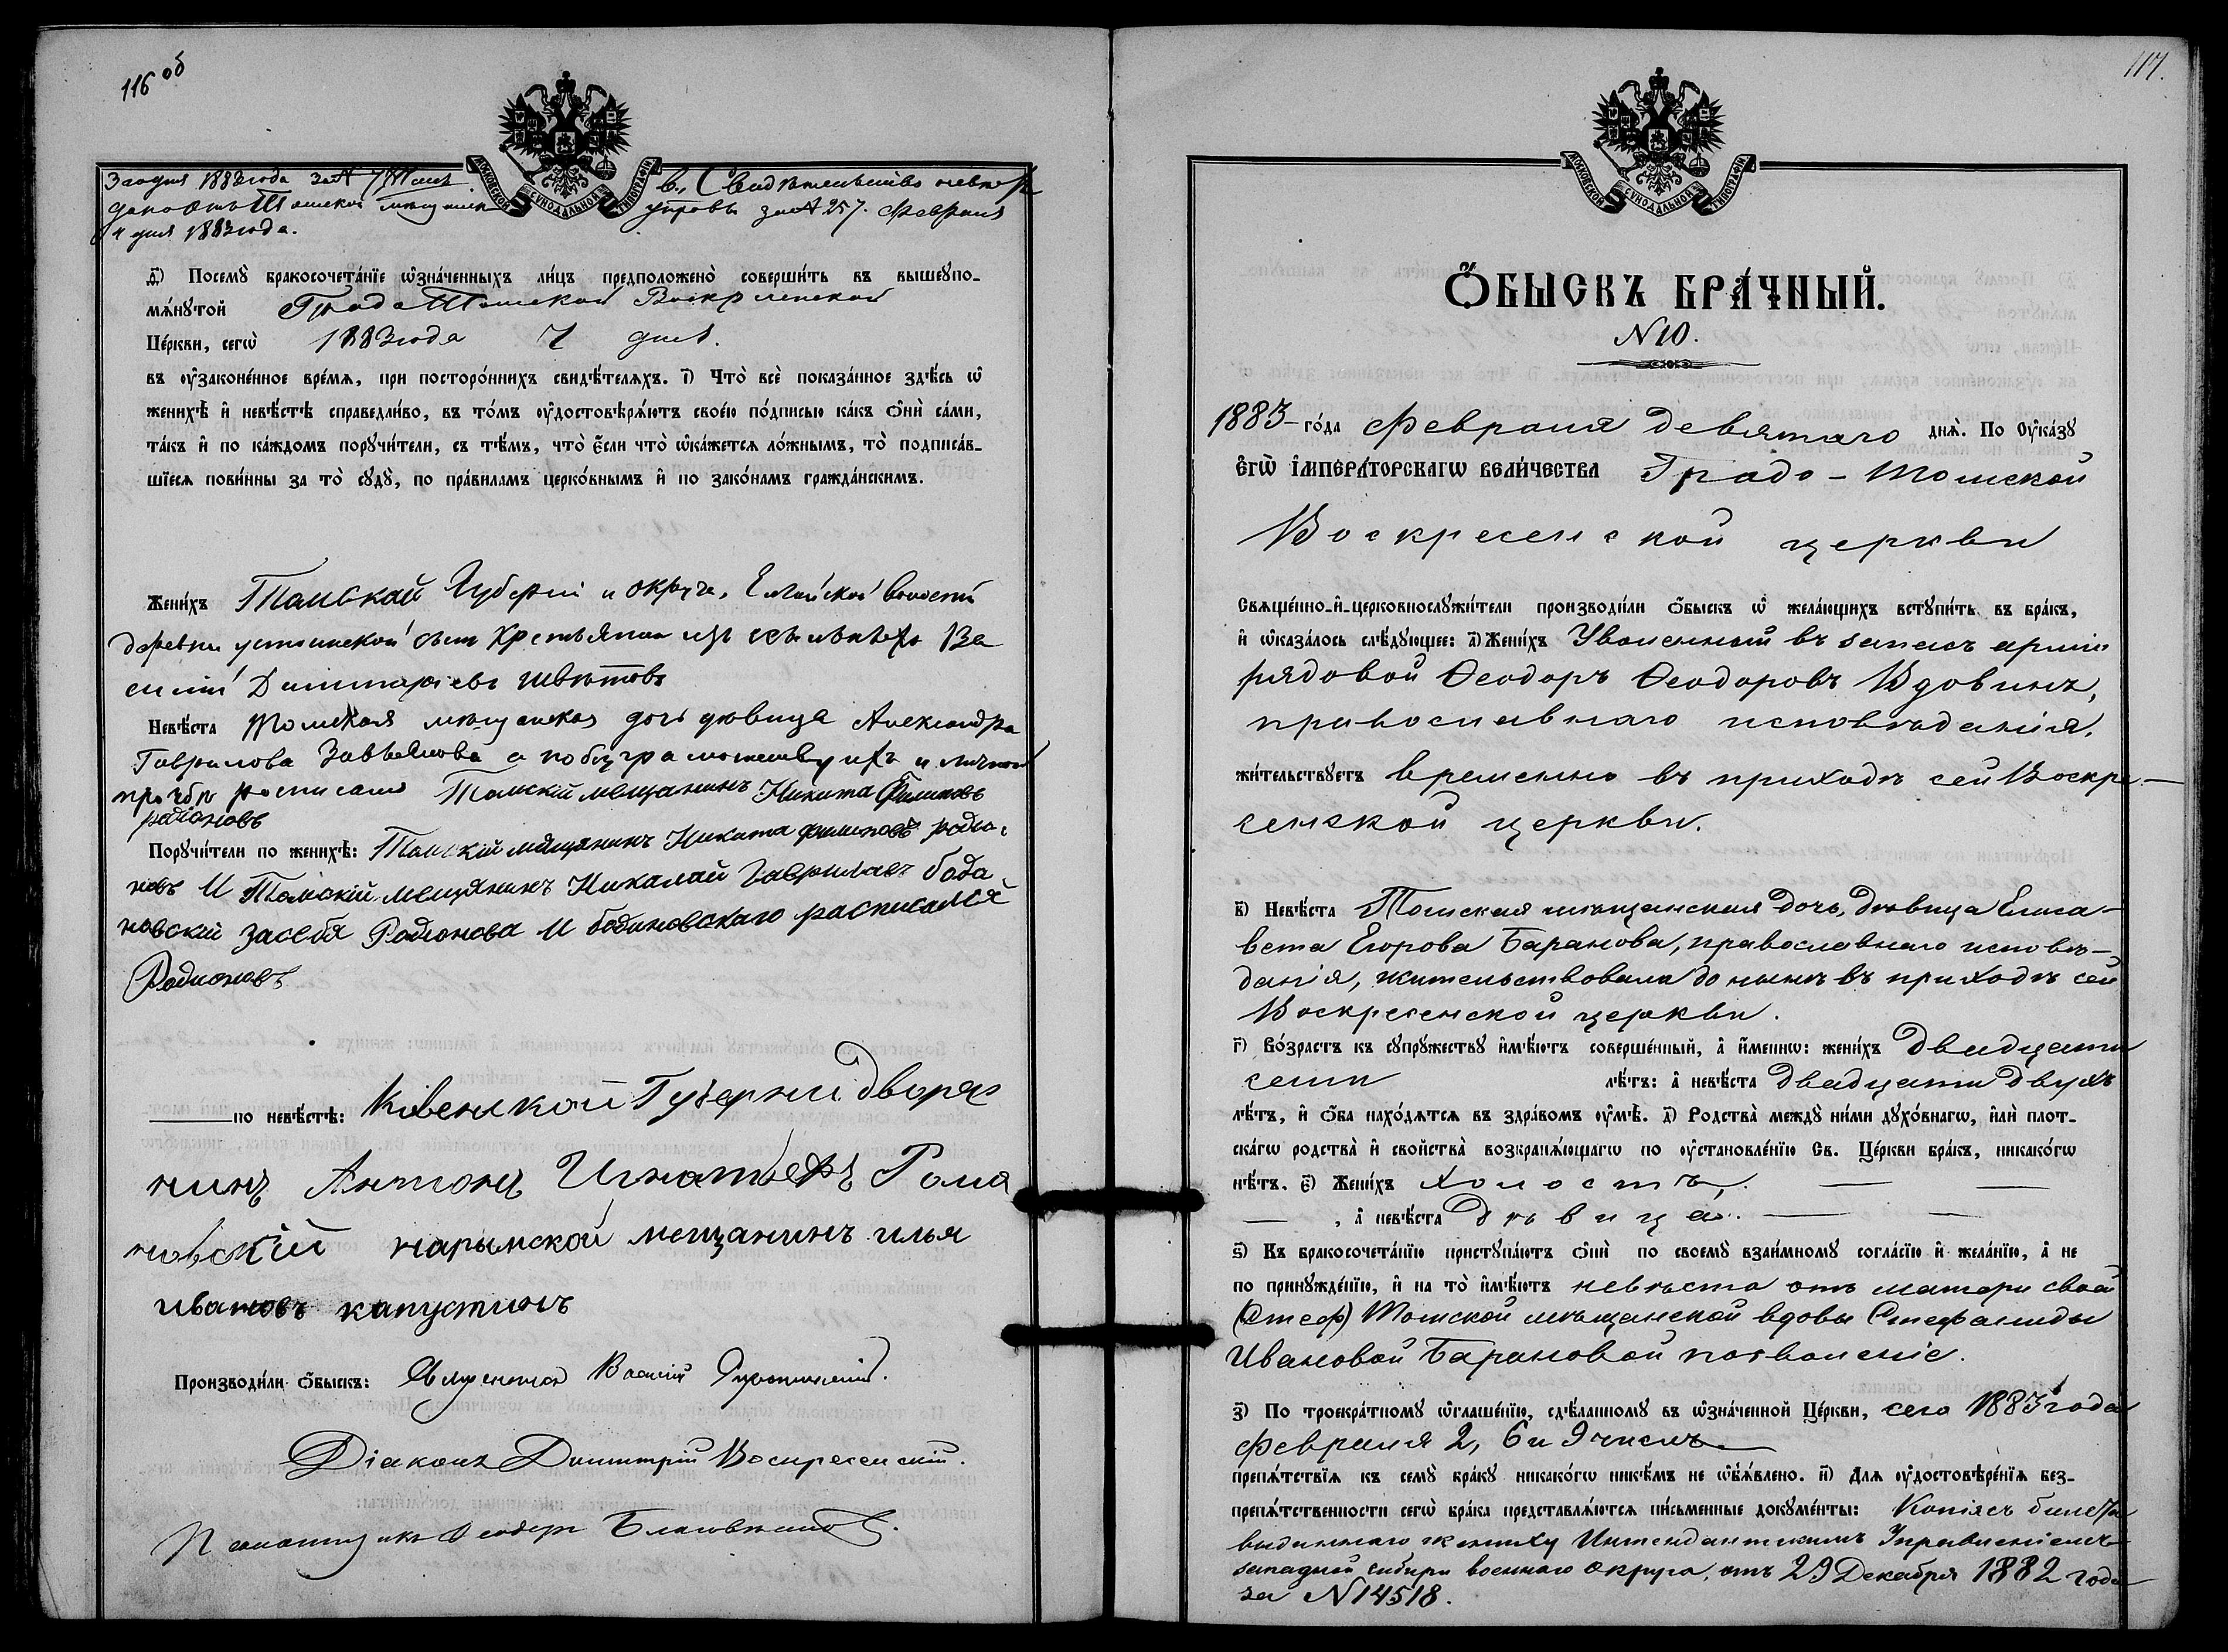 116 об
МОСКОВСКОЙ СѴНОДАЛЬНОЙ ТИПОГРАФІИ
дня 1883 года за №
в., Свидѣтельство
дано отъ Томской управы за № 257. Февраля
4 дня 1883 года.
д҃) Посемꙋ̀ бракосочета́нїе ѡ҆зна́ченныхъ ли́цъ предположено̀ соверши́ть въ вышеꙋпо-
мѧ́нꙋтой Градо Томской Воскресенской
Це́ркви, сегѡ̀ 1883 года 7 дня.
въ ᲂу҆законе́нное вре́мѧ, при посторо́ннихъ свидѣ́телѧхъ. і҃) Что̀ всѐ показа́нное здѣ́сь ѡ҆
женихѣ̀ и҆ невѣ́стѣ справедли́во, въ то́мъ ᲂу҆достовѣрѧ́ютъ свое́ю по́дписью ка́къ ѻ҆нѝ са́ми,
та́къ и҆ по ка́ждомъ порꙋчи́тели, съ тѣ́мъ, что̀ є҆́сли что̀ ѡ҆ка́жетсѧ ло́жнымъ, то̀ подписа́в-
шїесѧ пови́нны за то̀ сꙋдꙋ̀, по пра́виламъ церко́внымъ и҆ по зако́намъ гражда́нскимъ.
Жени́хъ Томской Губерніи и округа, Елгайской волости
деревни устинской сынъ Крестьянинъ изъ Ва
силій Димитріевъ Шветовъ
Невѣ́ста Томская мещанская дочь дювица Александра
Гаврилова Завьялова а по безграмотству ихъ и личной
прозбе росписался Томскій мещанинъ Никита Филиповъ
радіоновъ
Порꙋчи́тели по женихѣ̀: Томскій мещянинъ Никита филиповъ родио-
новъ И Томскій мещянинъ Никалай Гаврилавъ бода-
новскій засебя Родионова И бодановскаго расписался
Родионовъ
по невѣ́стѣ: Ковенской Губернии Дворя
нинъ Антонъ Игнатьевъ Рома
новскій нарымской мещанинъ илья
ивановъ капустинъ
Производи́ли ѻ҆́быскъ: Священникъ Василій
Діаконъ Димитрій Воскресенскій.
Псаломщикъ Феодоръ
117.
МОСКОВСКОЙ СѴНОДАЛЬНОЙ ТИПОГРАФІИ
Ѻ҆́БЫСКЪ БРА́ЧНЫЙ.
№ 10.
1883 – го́да Февраля девятаго днѧ̀. По Оу҆ка́зꙋ
Є҆ГѠ̀ І҆МПЕРА́ТОРСКАГѠ ВЕЛИ́ЧЕСТВА Градо – Томской
Воскресенской церкви
Свѧще́нно-и҆-церковнослꙋжи́тели производи́ли ѻ҆́быскъ ѡ҆ жела́ющихъ встꙋпи́ть въ бра́къ,
и҆ ѡ҆каза́лось слѣ́дꙋющее: а҃) Жени́хъ Уволенный въ запасъ арміи
рядовой Ѳеодоръ Ѳеодоровъ Вдовинъ,
православнаго исповѣданія,
жи́тельствꙋетъ временно въ приходѣ сей Воскре-
сенской церкви.
в҃) Невѣ́ста Томская мѣщанская дочь, дѣвица Елиса-
вета Егорова Баранова, православнаго исповѣ-
данія, жительствовала до нынѣ въ приходѣ сей
Воскресенской церкви.
г҃) Во́зрастъ къ сꙋпрꙋ́жествꙋ и҆мѣ́ютъ соверше́нный, а҆ и҆́меннѡ: жени́хъ Двадцати
семи лѣ́тъ: а҆ невѣ́ста двадцати двухъ
лѣ́тъ, и҆ ѻ҆́ба нахо́дѧтсѧ въ здра́вомъ ᲂу҆мѣ̀. д҃) Родства̀ междꙋ̀ ни́ми дꙋхо́внагѡ, и҆лѝ плот-
ска́гѡ родства̀ и҆ свойства̀ возбранѧ́ющагѡ по ᲂу҆становле́нїю Св. Це́ркви бра́къ, никако́гѡ
нѣ́тъ. є҃) Жени́хъ холостъ,
, а҆ невѣ́ста дѣвица.
ѕ҃) Къ бракосочета́нїю пристꙋпа́ютъ ѻ҆нѝ по своемꙋ̀ взаи́мномꙋ согла́сїю и҆ жела́нїю, а҆ не
по принꙋжде́нїю, и҆ на то̀ и҆мѣ́ютъ невѣста отъ матери своей
(Стеф) Томской мѣщанской вдовы Стефаниды
Ивановой Барановой позволеніе.
з҃) По троекра́тномꙋ ѡ҆глаше́нїю, сдѣ́ланномꙋ въ ѡ҆зна́ченной Це́ркви, сего 1883 года
Февраля 2, 6 и 9 чиселъ
препѧ́тствїѧ къ семꙋ̀ бра́кꙋ никако́гѡ никѣ́мъ не ѡ҆б̾ѧ́влено. и҃) Длѧ ᲂу҆достовѣре́нїѧ без-
препѧ́тственности сегѡ̀ бра́ка представлѧ́ютсѧ пи́сьменные докꙋме́нты: Копія съ билета
выданнаго жениху Интендантскимъ Управленіемъ
западной сибири военнаго округа, отъ 29 Декабря 1882 года
за № 14518.